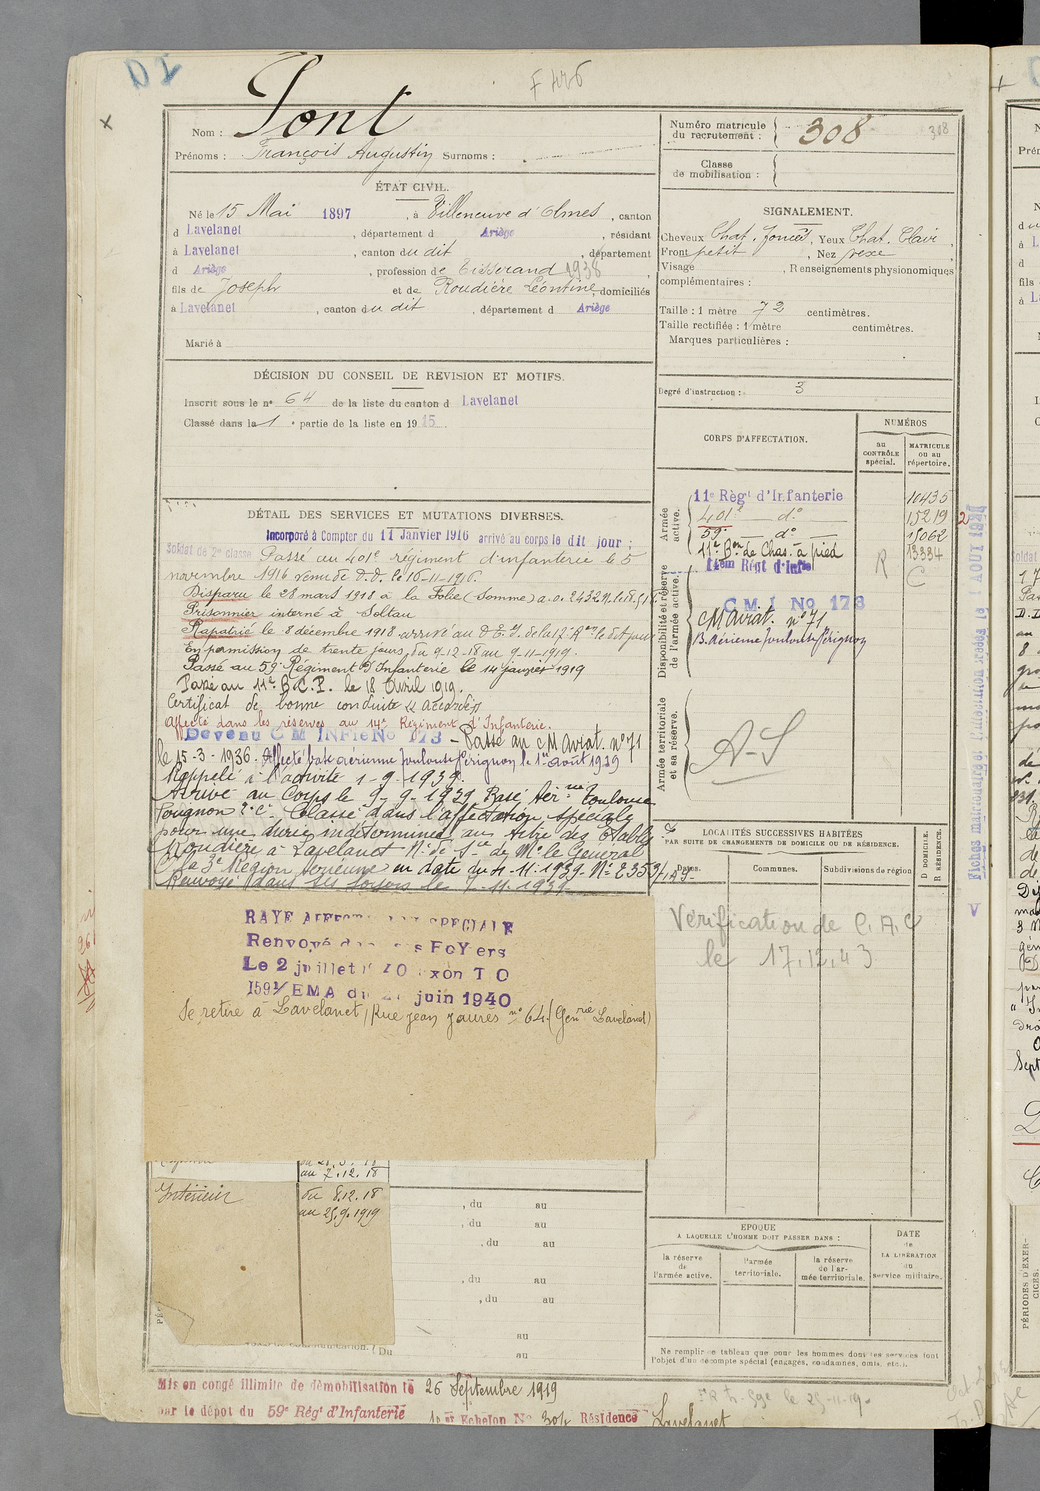 D2
F 446
Nom : Font
Prénoms : François Augustin Surnoms :
Numéro matricule du recrutement : 308
308
Classe de mobilisation :
ÉTAT CIVIL.
Né le 15 Mai 1897, à Villeneuve d'Olmes, canton
d Lavelanet, département d Ariège, résidant
à Lavelanet, canton du dit, département
d Ariège, profession de Tisserand 1938
fils de Joseph et de Roudière Léontine, domiciliés
à Lavelanet, canton du dit, département d Ariège
Marié à
SIGNALEMENT.
Cheveux Chat. foncés, Yeux Chat. Clair,
Front petit, Nez vexe
Visage, Renseignements physionomiques
complémentaires :
Taille : 1 mètre 72 centimètres.
Taille rectifiée : 1 mètre centimètres.
Marques particulières :
DÉCISION DU CONSEIL DE REVISION ET MOTIFS.
Inscrit sous le n° 64 de la liste du canton d Lavelanet
Classé dans la 1e partie de la liste en 1915.
Degré d'instruction : 3
CORPS D'AFFECTATION.
NUMÉROS
au CONTRÔLE spécial.
MATRICULE ou au répertoire.
Armée active.
11e Règt d'Infanterie 10435
401e d° 15219
59e d° 15062
11e Bon de Chas. à pied 13334
14em Régt d'Infie
Disponibilité et réserve de l'armée active.
C M I No 173
CM aviat. n° 71
B. Aérienne Toulouse Pérignon
R C
Armée territoriale et sa réserve.
A-S
DÉTAIL DES SERVICES ET MUTATIONS DIVERSES.
Incorporé à Compter du 11 Janvier 1916 arrivé au corps le dit jour ;
Soldat de 2e classe Passé au 401e régiment d'infanterie le 5
novembre 1916 venu de D.D. le 10-11-1916.
Disparu le 28 mars 1918 à la Folie (Somme)
Prisonnier interné à Soltau
Rapatrié le 8 décembre 1918 arrivé au D.E.I. de la 17e Ron le dit jour
En permission de trente jours, du 9-12-18 au 9-11-1919.
Passé au 59e Régiment d'Infanterie le 14 janvier 1919
Passé au 11e B.C.P. le 18 Avril 1919.
Certificat de bonne conduite "Accordé"
Affecté dans les réserves au 14e Régiment d'Infanterie.
Devenu C M INFie No 173 - Passé au CM Aviat. n° 71
le 15-3-1936. Affecté base aérienne Toulouse Pérignon le 1er août 1939
Rappelé à l'activité 1-9-1939.
Arrivé au Corps le 9-9-1939 Base Aérienne Toulouse
Pérignon 2e Cie Classé dans l'affectation spéciale
pour une durée indéterminée au titre des Établts
Roudière à Lavelanet N. de S. ce de Mr le Général
Ct la 3e Région aérienne en date du 4-11-1939 N° 2353/1.AS-
Renvoyé dans ses foyers le 7-11-1939
RAYE AFFECT SPECIALE
Renvoyé FoYers
Le 2 juillet
EMA du juin 1940
Se retire à Lavelanet, Rue Jean Jaurès n° 64 (Genrie Lavelanet)
LOCALITÉS SUCCESSIVES HABITÉES
PAR SUITE DE CHANGEMENTS DE DOMICILE OU DE RÉSIDENCE.
Dates. Communes. Subdivisions de région
D DOMICILE. R RÉSIDENCE.
Vérification de C.A.C
le 17.12.43
au 7.12.18
Intérieur du 8.12.18
au 25.9.1919
, du au
, du au
, du au
, du au
, du au
au
au
EPOQUE
A LAQUELLE L'HOMME DOIT PASSER DANS :
la réserve de l'armée active.
l'armée territoriale.
la réserve de l'armée territoriale.
DATE de LA LIBÉRATION du service militaire.
Ne remplir ce tableau que pour les hommes dont les services font
l'objet d'un décompte spécial (engagés, condamnés, omis, etc.).
Mis en congé illimité de démobilisation le 26 Septembre 1919
par le dépot du 59e Régt d'Infanterie
Echelon No 304 Résidence Lavelanet
PÉRIODES D'EXERCICES.